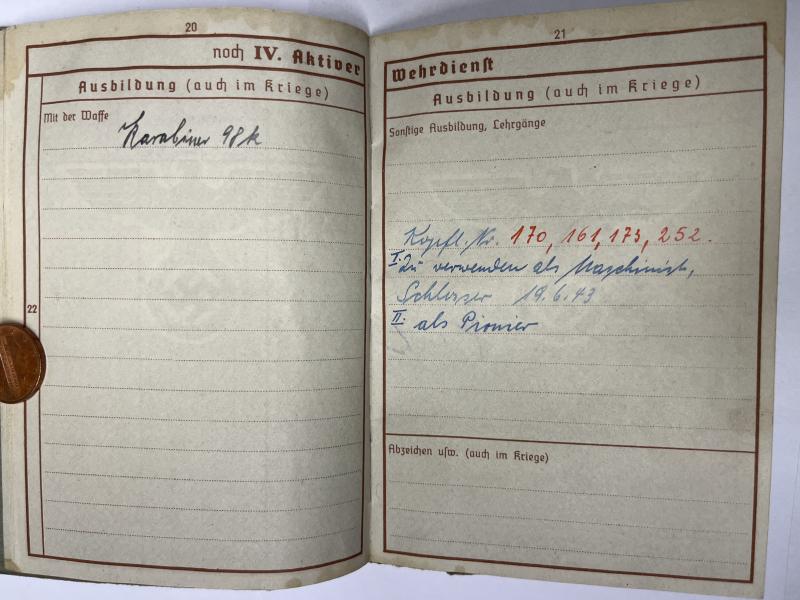 20
noch IV. Aktiver
Ausbildung (auch im Kriege)
Mit der Waffe
Karabiner 98k
22
21
Wehrdienst
Ausbildung (auch im Kriege)
Sonstige Ausbildung, Lehrgänge
Kopfl. Nr. 170, 161, 173, 252.
I. Zu verwenden als Maschinist,
Schlosser 19.6.43
II. als Pionier
Abzeichen usw. (auch im Kriege)